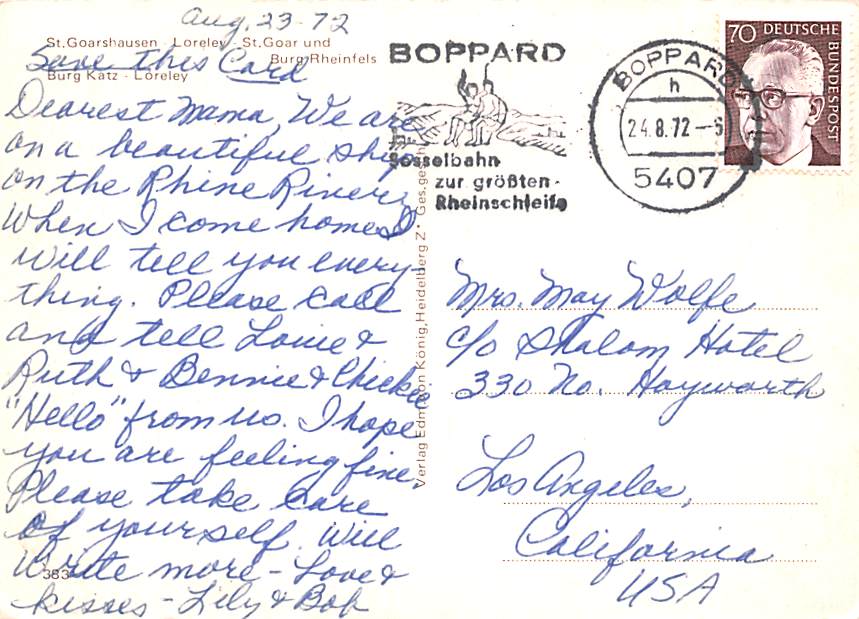 Aug. 23-72
St. Goarshausen Loreley - St. Goar und
Burg Rheinfels
Burg Katz - Loreley
Save this Card
Dearest Mama, We are
on a beautiful ship
on the Rhine River,
When I come home I
will tell you every-
thing. Please call
and tell Louie &
Ruth & Bennie & Chickie
"Hello" from us. I hope
you are feeling fine.
Please take care
of yourself. Will
write more - Love &
kisses - Lily & Bob
383
Verlag Edm. von König, Heidelberg Z · Ges. gesch.
BOPPARD
Sesselbahn
zur größten
Rheinschleife
BOPPARD
h
24.8.72-
5407
70 DEUTSCHE
BUNDESPOST
Mrs. May Wolfe
c/o Shalom Hotel
330 No. Hayworth
Los Angeles,
California
USA